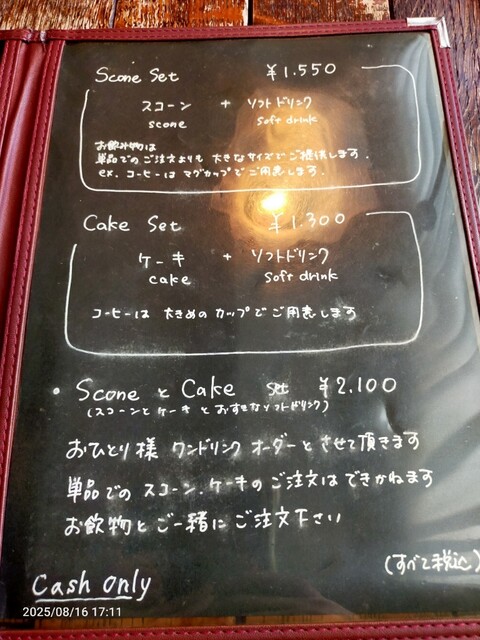 Scone Set ¥1.550
スコーン + ソフトドリンク
scone soft drink
お飲み物は
単品でのご注文よりも 大きなサイズでご提供します.
ex. コーヒーは マグカップでご用意します.
Cake Set ¥1.300
ケーキ + ソフトドリンク
cake soft drink
コーヒーは 大きめのカップでご用意します
• Scone と Cake set ¥2.100
(スコーンとケーキとお好きなソフトドリンク)
おひとり様 ワンドリンクオーダーとさせて頂きます
単品での スコーン.ケーキのご注文はできかねます
お飲物とご一緒にご注文下さい
(すべて税込)
Cash only
2025/08/16 17:11